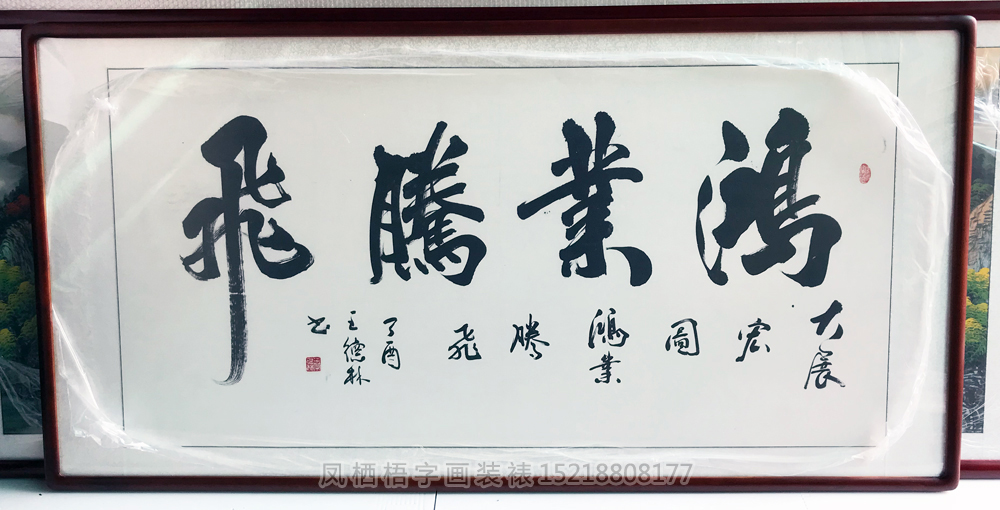 鴻業騰飛
大展宏圖鴻業騰飛
丁酉
王德林
书
凤栖梧字画装裱15218808177